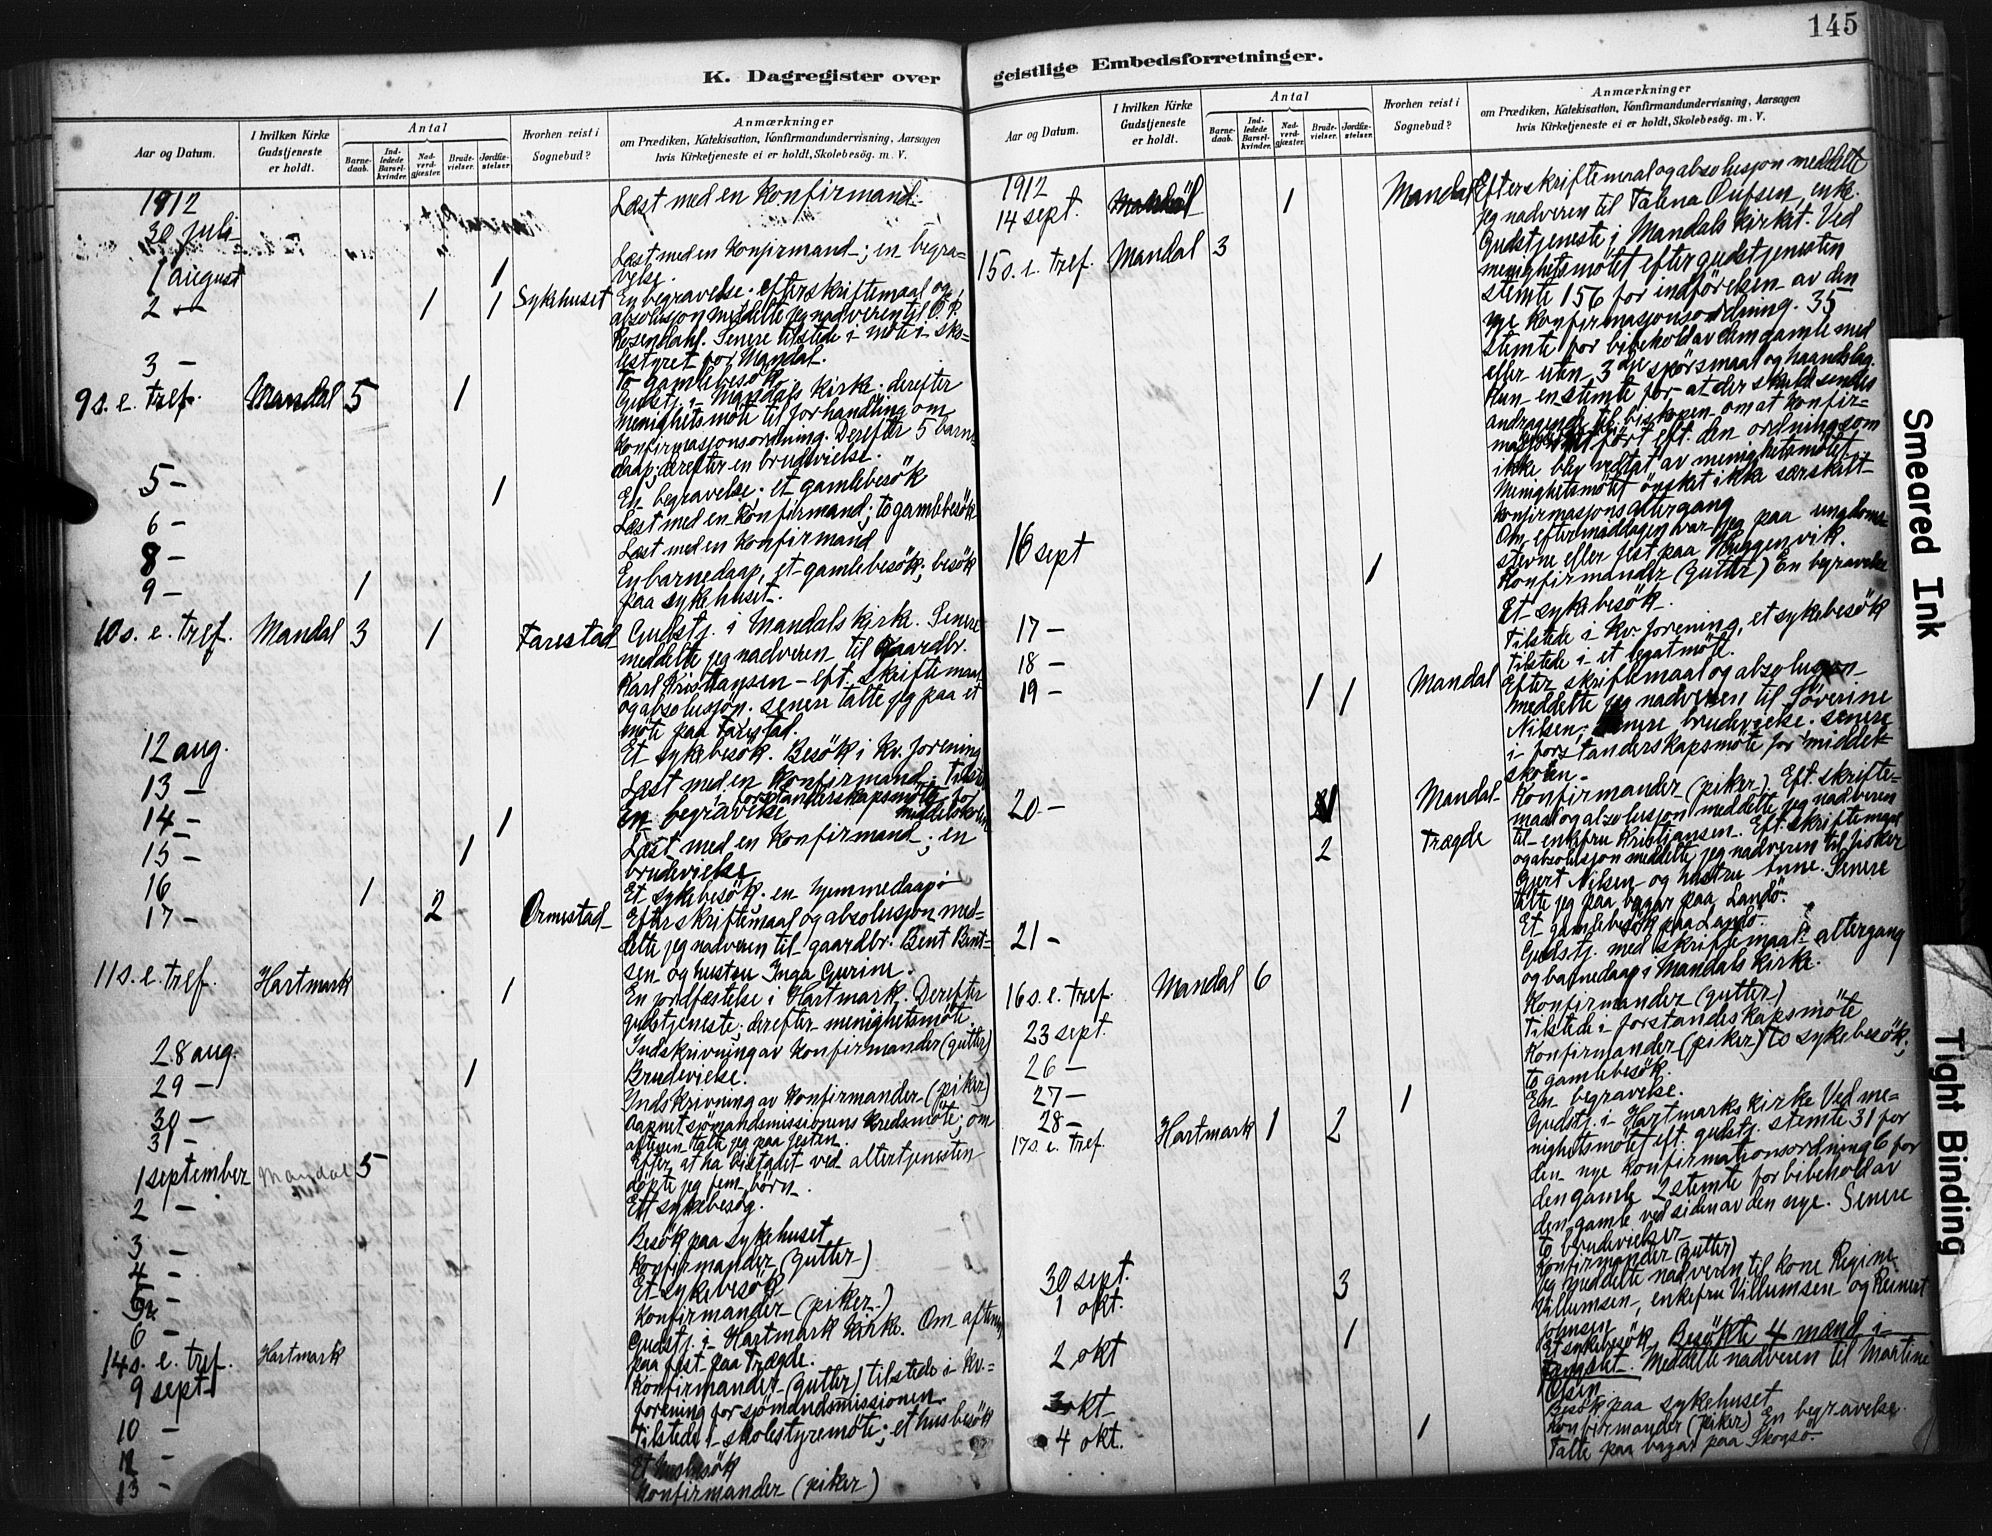 145
K. Dagregister over
geistlige Embedsforretninger.
Aar og Datum.
I hvilken Kirke
Gudstjeneste
er holdt.
Antal
Barne-
daab.
Ind-
ledede
Barsel-
kvinder.
Nad-
verd-
gjæster.
Brude-
vielser.
Jordfæ-
stelser.
Hvorhen reist i
Sognebud?
Anmærkninger
om Prædiken, Katekisation, Konfirmandundervisning, Aarsagen
hvis Kirketjeneste ei er holdt, Skolebesøg. m. V.
1912
30 juli
Læst med en konfirmand.
1 august 1
Læst med en konfirmand; en begra-
velse.
2 — 1 1 Sykehuset
En begravelse. efter skriftemaal og
absolusjon meddelte jeg nadveren til O. P.
Rosendahl. Senere tilstede i möte i sko-
lestyret for Mandal.
3 —
To gamlebesök.
9 s. e. tref. Mandal 5 1
Gudstj. i Mandals kirke. derefter
menighetsmöte til forhandling om
konfirmasjonsordning. Derefter 5 barne-
daap; derefter en brudevielse.
5 — 1
En begravelse; et gamlebesök
6 —
Læst med en konfirmand; to gamlebesök
8 —
Læst med en konfirmand
9 — 1
En barnedaap, et gamlebesök; besök
paa sykehuset.
10 s. e. tref. Mandal 3 1 Farestad
Gudstj. i Mandals kirke. Senere
meddelte jeg nadveren til gaardbr.
Karl Kristiansen – eft. skriftemaal
og absolusjon. senere talte jeg paa et
möte paa Farestad.
12 aug.
Et sykebesök. Besök i kv. forening
13 —
Læst med en konfirmand;
i forstanderskapsmöte for
middelskolen
14 — 1
En begravelse
15 — 1
Læst med en konfirmand; en
brudevielse
16 1
Et sykebesök. en hjemmedaap
17 — 2 Ormestad
Efter skriftemaal og absolusjon med-
delte jeg nadveren til gaardbr. Bent Bent-
sen og hustru Inga Gurine.
11 s. e. tref. Hartmark 1
En jordfæstelse i Hartmark. Derefter
gudstjeneste; derefter menighetsmöte
28 aug.
Indskrivning av konfirmander (gutter)
29 — 1
Brudevielse.
30 —
Indskrivning av konfirmander (piker)
31 —
Aapnet sjömandsmissionens kredsmöte; om
aftenen talte jeg paa festen.
1 september Mandal 5
Efter at ha bistaaet ved altertjenesten
döpte jeg fem börn.
2 —
Et sykebesög.
3 —
Besök paa sykehuset
4 —
Konfirmander (gutter)
5 —
Et sykebesök
6 —
Konfirmander (piker)
14 s. e. tref. Hartmark
Gudstj. i Hartmark kirke. Om aftenen
paa fest paa Trægde.
9 sept
Konfirmander (gutter) tilstede i kv.-
forening for sjömandsmissionen
10 —
Tilstede i skolestyremöte; et husbesök
12 —
Et husbesök
13 —
Konfirmander (piker)
Aar og Datum.
I hvilken Kirke
Gudstjeneste
er holdt.
Antal
Barne-
daab.
Ind-
ledede
Barsel-
kvinder.
Nad-
verd-
gjæster.
Brude-
vielser.
Jordfæ-
stelser.
Hvorhen reist i
Sognebud?
Anmærkninger
om Prædiken, Katekisation, Konfirmandundervisning, Aarsagen
hvis Kirketjeneste ei er holdt, Skolebesøg. m. V.
1912
14 sept. 1 Mandal
Efter skriftemaal og absolusjon meddelte
jeg nadveren til Talena Olufsen, enke.
15 s. e. tref. Mandal 3
Gudstjeneste i Mandals kirke. Ved
menighetsmötet efter gudstjenesten
stemte 156 for indförelsen av den
nye konfirmasjonsordning. 35
stemte for bibehold av den gamle med
eller uten 3dje spörsmaal og haandslag.
Kun en stemte for, at der skulde sendes
andragende til biskopen om at konfir-
eft. den ordning som
ikke blev vedtat av menighetsmötet.
Menighetsmötet önsket ikke særskilt
konfirmasjonsaltergang
Om eftermiddagen var jeg paa ungdoms-
stevne eller fest paa
16 sept 1
Konfirmander (gutter) En begravelse
Et sykebesök.
17 —
Tilstede i kv. forening, et sykebesök
18 —
Tilstede i et legatmöte.
19 — 1 1 Mandal
Efter skriftemaal og absolusjon
meddelte jeg nadveren til Söverine
Nilsen. Senere brudevielse. senere
i forstanderskapsmöte for middel-
skolen.
20 — 1 Mandal
Konfirmander (piker) Eft. skrifte-
maal og absolusjon meddelte jeg nadveren
til enkefru Kristiansen. Eft. skriftemaal
2 Trægde
og absolusjon meddelte jeg nadveren til fisker
Gjert Nilsen og hustru Anne. Senere
talte jeg paa bazar paa Landö.
21 —
Et gamlebesök paa Landö.
16 s. e. tref. Mandal 6
Gudstj. med skriftemaal altergang
og barnedaap i Mandals kirke.
23 sept.
Konfirmander (gutter)
26 —
Tilstede i forstanderskapsmöte
27 —
Konfirmander (piker) to sykebesök;
to gamlebesök.
28 — 1
En begravelse.
17 s. e. tref. Hartmark 1 2
Gudstj. i Hartmarks kirke Ved me-
nighetsmötet eft. gudstj. stemte 31 for
den nye konfirmationsordning 6 for
den gamle 2 stemte for bibehold av
den gamle ved siden av den nye. Senere
to brudevielser
30 sept.
Konfirmander (gutter)
1 okt. 3
Jeg meddelte nadveren til kone Regine
Villumsen, enkefru Villumsen og Reinert
Johnsen
2 okt 1
Et sykebesök Besökte 4 mænd i
fængslet. Meddelte nadveren til Martine
Olsen
3 okt
Besök paa sykehuset
4 okt. 1
Konfirmander (piker) En begravelse.
Talte paa bazar paa Skogsö.
Smeared Ink
Tight Binding